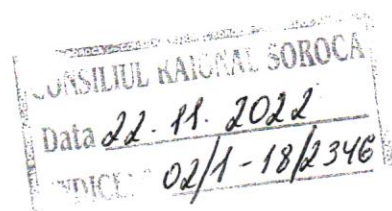 CONSILIUL RAIONAL SOROCA
Data 22. 11. 2022
INDICE 02/1-18/2346